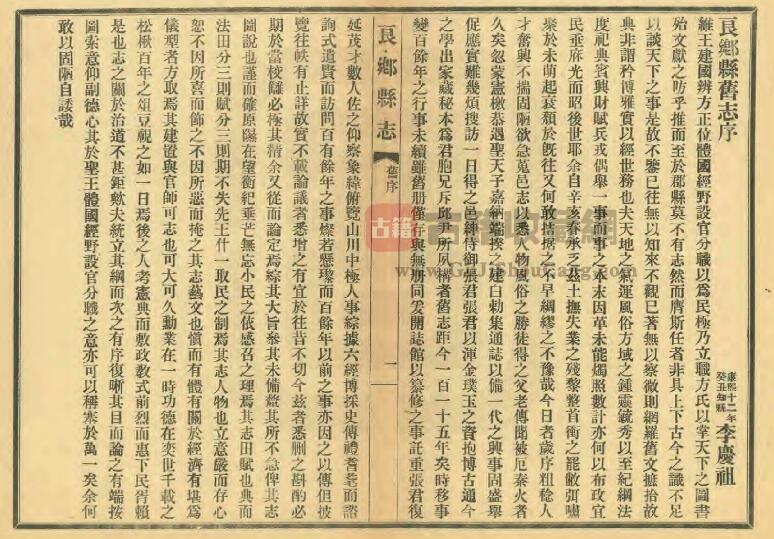 良鄉縣舊志序
康熙十二年癸丑知縣 李慶祖
維王建國辨方正位體國經野設官分職以爲民極乃立職方氏以掌天下之圖書
殆文獻之昉乎推而至於郡縣莫不有志然而膺斯任者非具上下古今之識不足
以談天下之事是故不鑒已往無以知來不觀已著無以察微則網羅舊文摭拾故
典非謂矜博雅實以經世務也夫天地之氣運風俗方域之鍾靈毓秀以至紀綱法
度祀典賓興財賦兵戎偶舉一事而事之本末因革未能燭照數計亦何以布政宜
民垂庥光而昭後世耶余自辛亥春承乏茲土撫失業之殘黎整首衝之罷敝弭嘯
聚於未萌起衰頹於旣往又何敢拮据之不早綢繆之不豫哉今日者歲序粗稔人
才奮興不揣固陋欲急蒐邑志以悉人物風俗之勝徒得之父老傳聞被厄秦火者
久矣忽蒙憲檄恭遇聖天子嘉納端揆之建白勅集通誌以備一代之興事固盛舉
促應實難幾煩搜訪一日得之邑紳侍御張君張君以渾金璞玉之資抱博古通今
之學出家藏秘本爲君胞兄斥邱尹所夙構者舊志距今一百一十五年矣時移事
變百餘年之行事未續雖舊册僅存與無册同爰開誌館以纂修之事託重張君復
良鄉縣志
舊序
一
延茂才數人佐之仰察象緯俯覽山川中極人事綜據六經博採史傳禮耆耄而諮
詢式遺賢而訪問百有餘年之事燦若懸瓈而百餘年以前之事亦因之以傳但披
覽往帙有止詳故實不載論議者悉增之有宜於往昔不切今兹者悉刪之斟酌必
期於當校讎必極其精余又從而論定焉綜其大旨參其未備釐其所不急俾其志
圖說也謹而確原隰在望衡紀垂芒無忘小民之依感召之理焉其志田賦也典而
法田分三則賦分三則期不失先王什一取民之制焉其志人物也立意嚴而存心
恕不因所喜而飾之不因所惡而掩之其志藝文也愼而有體有關於經濟有堪爲
儀型者方取焉其建置與官師可志也可大可久勳業在一時功德在奕世千載之
松楸百年之俎豆視之如一日焉後之人考憲典而敷政教式前烈而惠下民胥賴
是也志之關於治道不甚鉅歟夫統立其綱而次之有序復晰其目而論之有端按
圖索意仰副德心其於聖王體國經野設官分職之意亦可以稱塞於萬一矣余何
敢以固陋自諉哉
古籍
古籍收藏網
www.GuJiShuFang.com